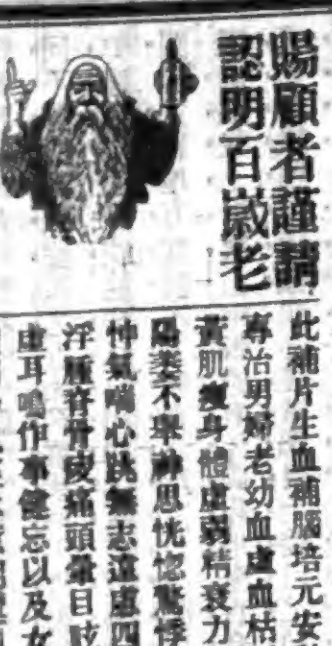 賜顧者謹請
認明百歲老
此補片生血補腦培元安
專治男婦老幼血虛血枯
黃肌瘦身體虛弱精衰力
陽萎不舉神思恍惚驚悸
忡氣喘心跳無志遠慮四
浮腫脊骨痠痛頭暈目眩
虛耳鳴作事健忘以及女